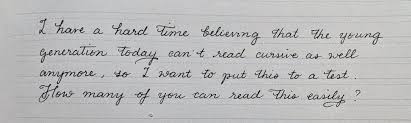 I have a hard time believing that the young
generation today can't read cursive as well
anymore, so I want to put this to a test.
How many of you can read this easily?